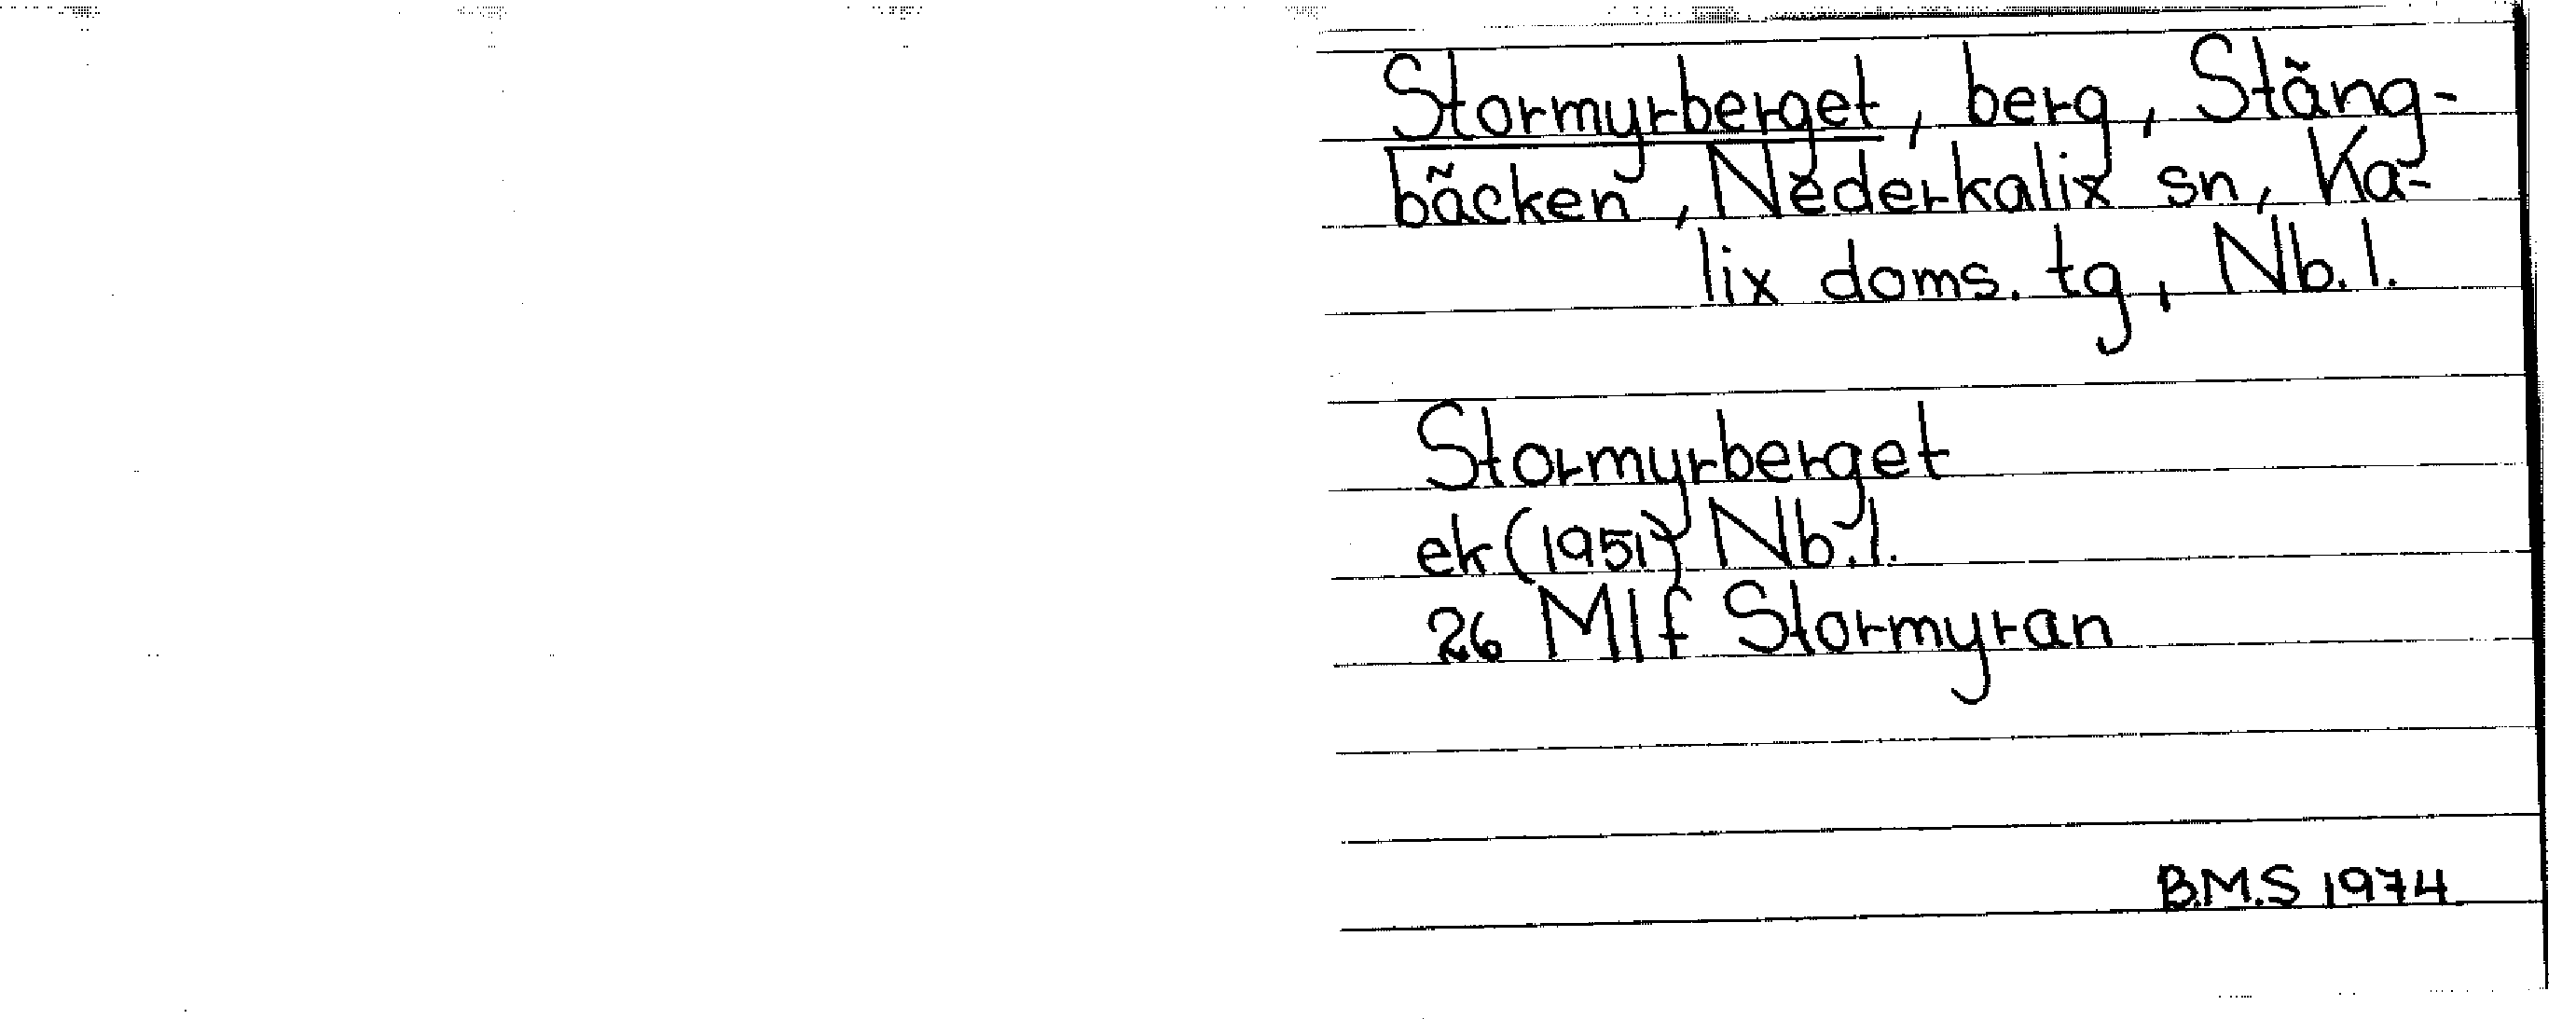 Stormyrberget, berg, Stäng-
bäcken, Nederkalix sn, Ka-
lix doms. tg, Nb. l.
Stormyrberget
ek (1951) Nb. l.
26 M1f Stormyran
B.M.S 1974